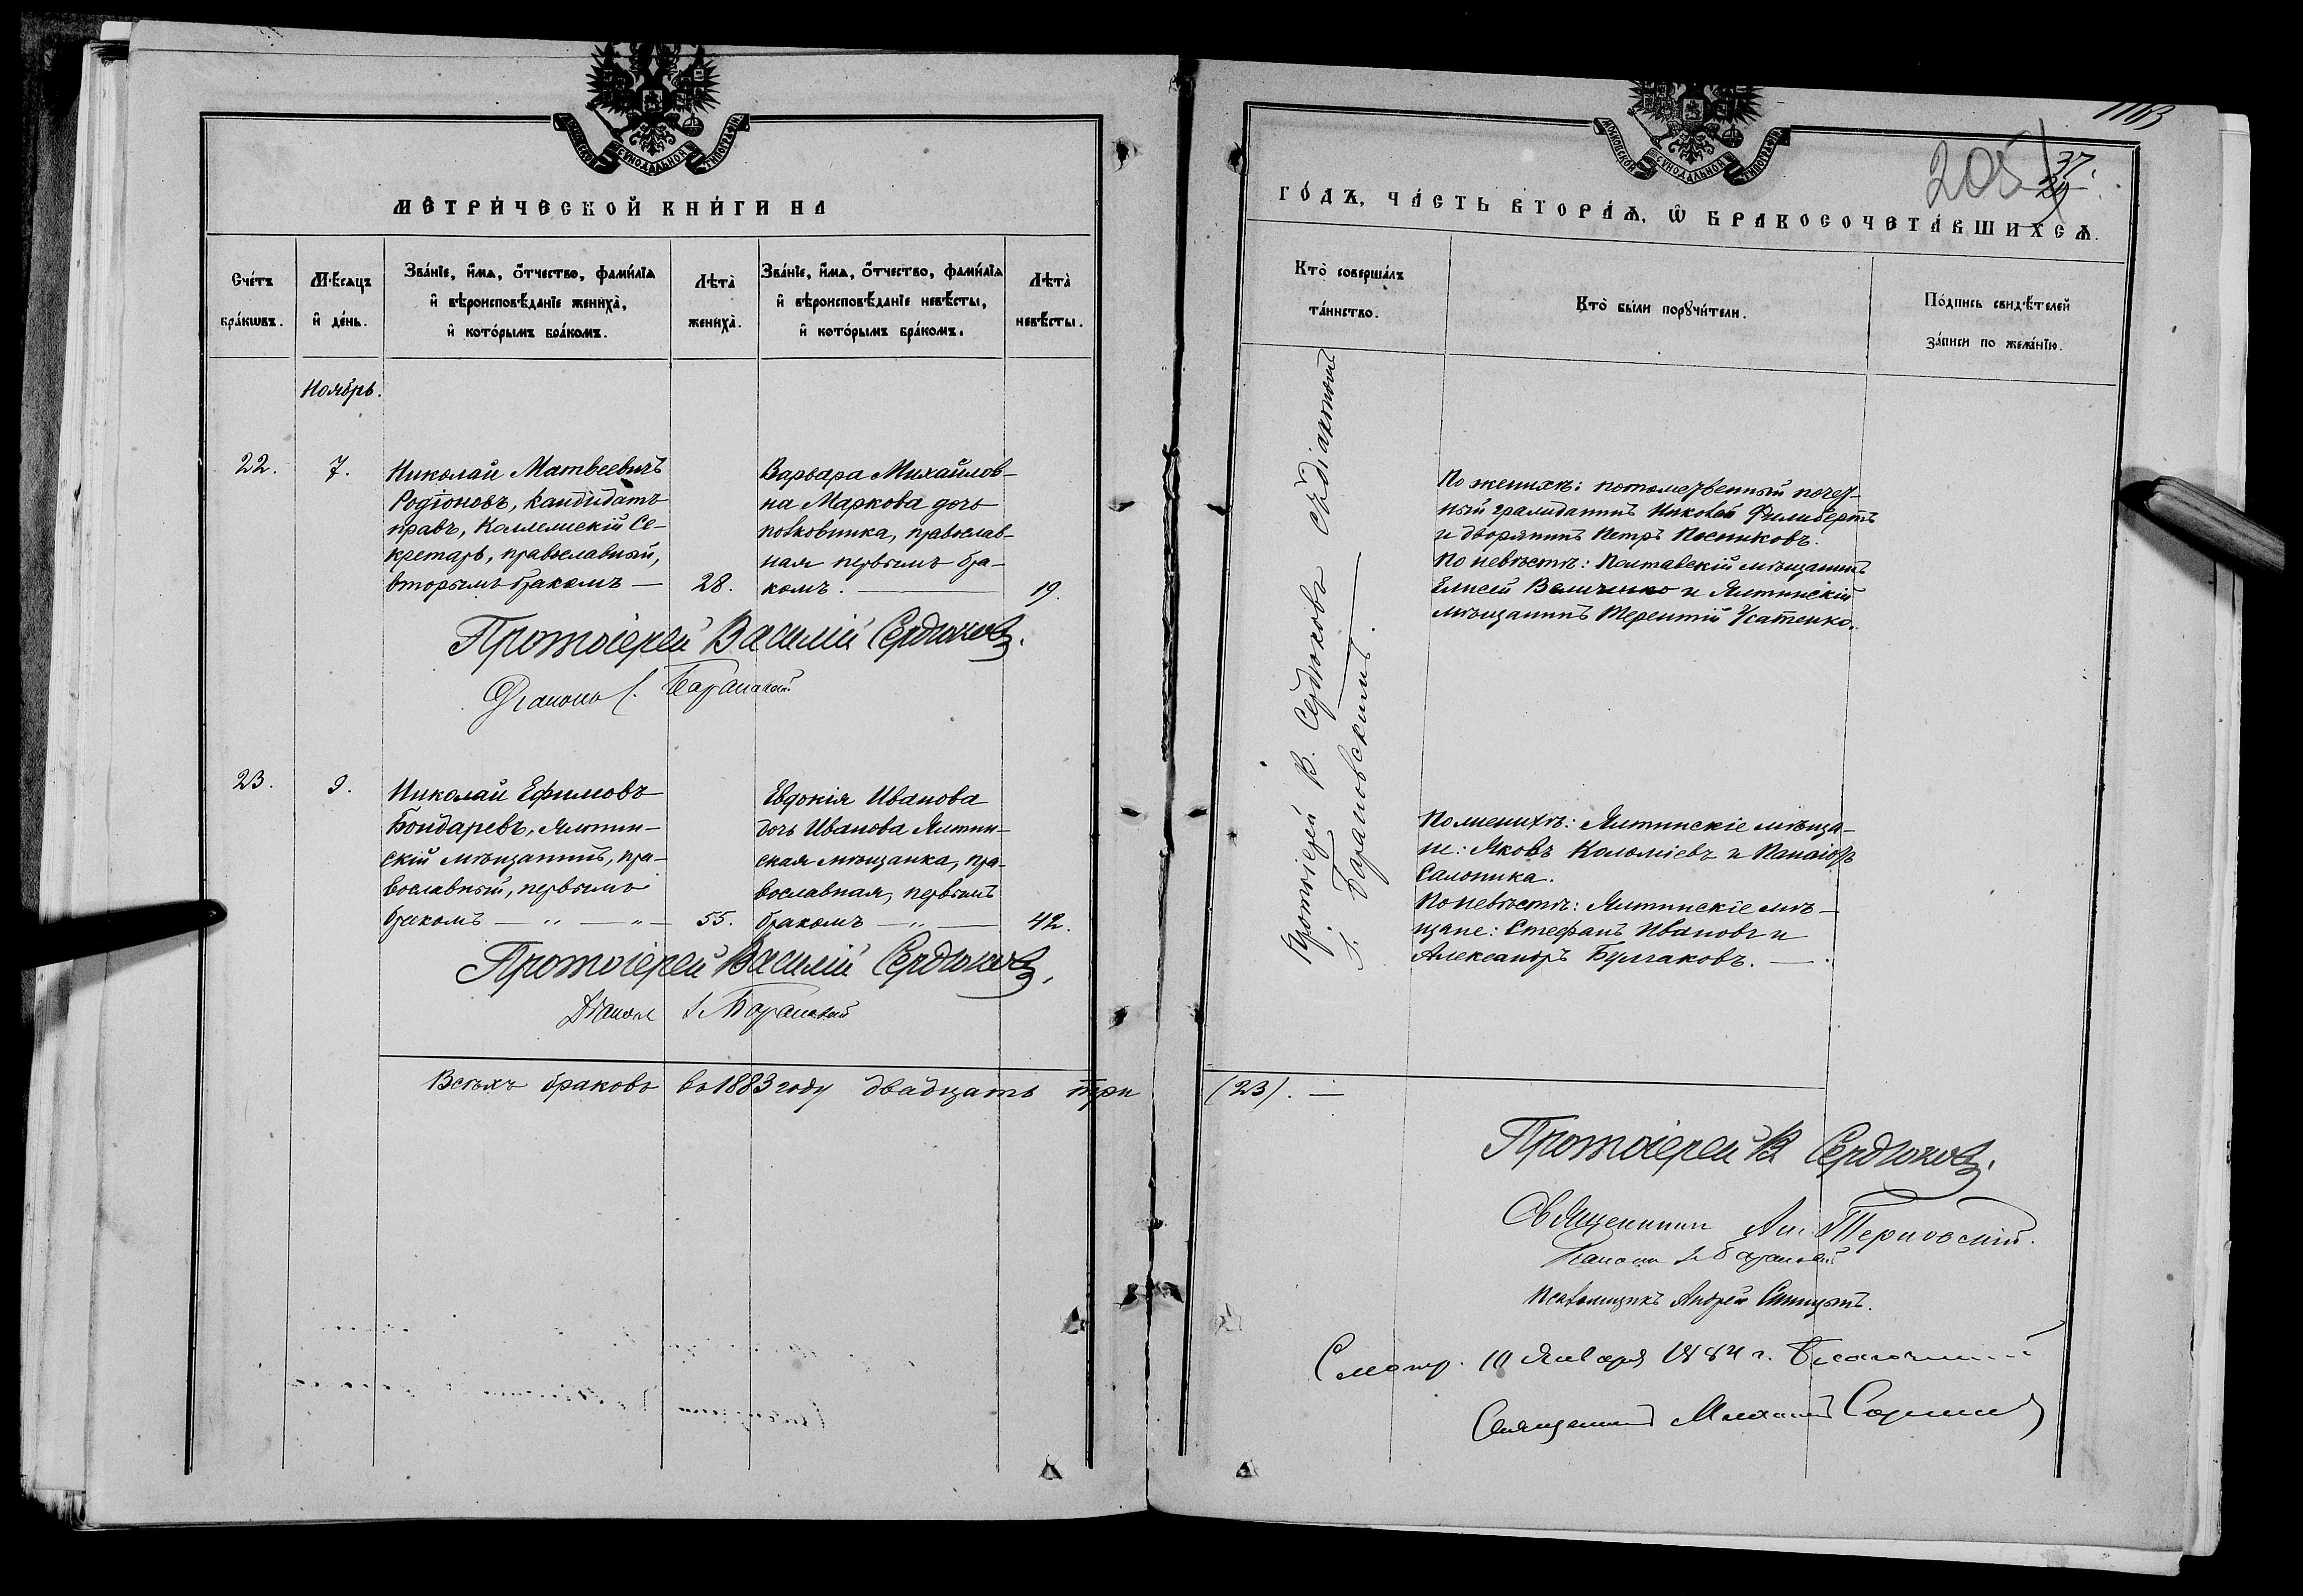 МОСКОВСКОЙ СѴНОДАЛЬНОЙ ТИПОГРАФІИ
МЕТРИ́ЧЕСКОЙ КНИ́ГИ НА
Сче́тъ бра́кѡвъ.
Мѣ́сѧцъ и҆ де́нь.
Зва́нїе, и҆́мѧ, ѻ҆́тчество, фами́лїѧ
и҆ вѣроисповѣ́данїе жениха̀,
и҆ кото́рымъ бра́комъ.
Лѣта̀ жениха̀.
Зва́нїе, и҆́мѧ, ѻ҆́тчество, фами́лїѧ
и҆ вѣроисповѣ́данїе невѣ́сты,
и҆ кото́рымъ бра́комъ.
Лѣта̀ невѣ́сты.
Ноябрь.
22.
7.
Николай Матвеевичъ
Родіоновъ, кандидатъ
правъ, Коллежскій Се-
кретарь, православный,
вторымъ бракомъ —
28.
Варвара Михайлов-
на Маркова дочь
полковника, православ-
ная первымъ бра-
комъ. —
19.
Протоіерей Василій Сердюковъ.
Діаконъ Г. Барановскій
23.
9.
Николай Ефимовъ
Бондаревъ, Ялтин-
скій мѣщанинъ, пра-
вославный, первымъ
бракомъ — „ — „ —
55.
Евдокія Иванова
дочь Иванова Ялтин-
ская мѣщанка, пра-
вославная, первымъ
бракомъ — „ —
42.
Протоіерей Василій Сердюковъ.
Діаконъ Г. Барановскій
Всѣхъ браковъ въ 1883 году двадцать три
1163
205
37.
29
МОСКОВСКОЙ СѴНОДАЛЬНОЙ ТИПОГРАФІИ
ГО́ДЪ, ЧА́СТЬ ВТОРА́Ѧ, Ѽ БРАКОСОЧЕТА́ВШИХСѦ.
Кто̀ соверша́лъ
та́инство.
Кто̀ бы́ли порꙋчи́тели.
По́дпись свидѣ́телей
за́писи по жела́нїю.
Протоіерей В. Сердюковъ съ діакономъ
Г. Барановскимъ.
По женихѣ: потомственный почет-
ный гражданинъ Николай Филибертъ
и дворянинъ Петръ Посниковъ.
По невѣстѣ: Полтавскій мѣщанинъ
Елисей Величенко и Ялтинскій
мѣщанинъ Терентій Усатенко.
По женихѣ: Ялтинскіе мѣща-
не: Яковъ Коломіевъ и Панаіотъ
Салоника.
По невѣстѣ: Ялтинскіе мѣ-
щане: Стефанъ Ивановъ и
Александръ Булгаковъ. —
(23). —
Протоіерей В Сердюковъ.
Священникъ Ал. Терновскій.
Діаконъ Г. Барановскій
Псаломщикъ Андрей
Смотр. 10 Января 1884 г. Благочинный
Священникъ Михаилъ